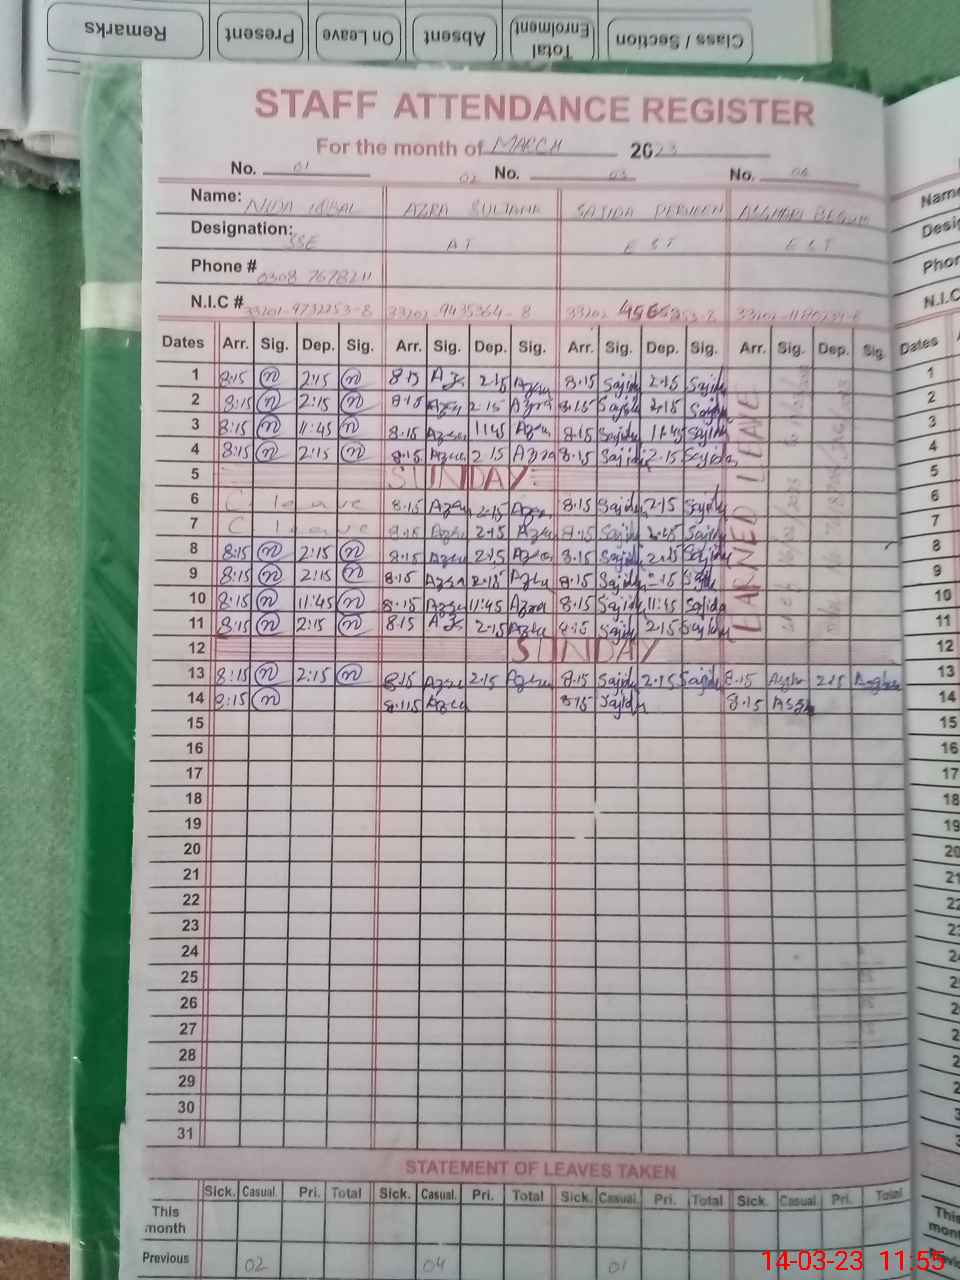 Class / Section Total Enrolment Absent On Leave Present Remarks
STAFF ATTENDANCE REGISTER
For the month of MARCH 2023
No. 01 02 No. 03 No. 04
Name: NIDA IQBAL AZRA SULTANA SAJIDA PERVEEN ASGHARI BEGUM
Designation: SSE AT EST EST
Phone # 0308 7678211
N.I.C # 33201-9732253-8 33202-9435364-8 33202
Dates Arr. Sig. Dep. Sig. Arr. Sig. Dep. Sig. Arr. Sig. Dep. Sig. Arr. Sig. Dep. Sig.
EARNED LEAVE
1 8:15 n 2:15 n 8.15 Az 2.15 Azra 8.15 Sajida 2.15 Sajida
2 8:15 n 2:15 n 8.15 Azra 2.15 Azra 8.15 Sajida 2.15 Sajida
3 8:15 n 11:45 n 8.15 Azra 11:45 Azra 8.15 Sajida 11:45 Sajida
4 8:15 n 2:15 n 8.15 Azra 2.15 Azra 8.15 Sajida 2.15 Sajida
5 SUNDAY
6 C leave 8.15 Azra 2.15 Azra 8.15 Sajida 2.15 Sajida
7 C leave 8.15 Azra 2.15 Azra 8.15 Sajida 2.15 Sajida
8 8:15 n 2:15 n 8.15 Azra 2.15 Azra 8.15 Sajida 2.15 Sajida
9 8:15 n 2:15 n 8.15 Azra 2.15 Azra 8.15 Sajida 2.15 Sajida
10 8:15 n 11:45 n 8.15 Azra 11:45 Azra 8.15 Sajida 11:45 Sajida
11 8:15 n 2:15 n 8.15 Az 2.15 Azra 8.15 Sajida 2.15 Sajida
12 SUNDAY
13 8:15 n 2:15 n 8.15 Azra 2.15 Azra 8.15 Sajida 2.15 Sajida 8.15 Asghar 2.15 Asghar
14 8:15 n 8.15 Azra 8.15 Sajida 8.15
15
16
17
18
19
20
21
22
23
24
25
26
27
28
29
30
31
STATEMENT OF LEAVES TAKEN
Sick. Casual. Pri. Total Sick. Casual. Pri. Total Sick. Casual. Pri. Total Sick. Casual. Pri. Total
This month
Previous 02 04 01
14-03-23 11:55
Name
Phon
N.I.C
Dates
1
2
3
4
5
6
7
8
9
10
11
12
13
14
15
16
17
18
19
20
21